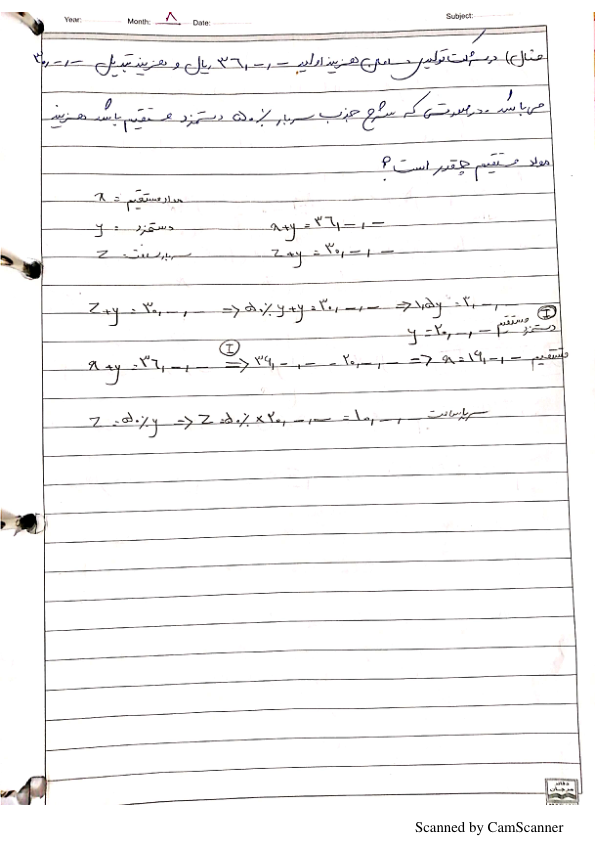 Year: Month: ٨ Date: Subject:
مثال) در شرکت تولیدی سامان هزینه اولیه ۳۶,۰۰۰,۰۰۰ ریال و هزینه تبدیل ۳۰,۰۰۰,۰۰۰
می باشد در صورتی که نرخ جذب سربار ۵۰٪ دستمزد مستقیم باشد هزینه
مواد مستقیم چقدر است؟
مواد مستقیم = x
دستمزد = y x+y = ۳۶,۰۰۰,۰۰۰
سربار ساخت = z z+y = ۳۰,۰۰۰,۰۰۰
z+y = ۳۰,۰۰۰,۰۰۰ => ۵۰٪ y+y = ۳۰,۰۰۰,۰۰۰ => ۱,۵y = ۳۰,۰۰۰,۰۰۰
y = ۲۰,۰۰۰,۰۰۰ دستمزد مستقیم I
x+y = ۳۶,۰۰۰,۰۰۰ I => ۳۶,۰۰۰,۰۰۰ - ۲۰,۰۰۰,۰۰۰ => x = ۱۶,۰۰۰,۰۰۰ مستقیم
z = ۵۰٪ y => z = ۵۰٪ × ۲۰,۰۰۰,۰۰۰ = ۱۰,۰۰۰,۰۰۰ سربار ساخت
دفاتر
مرجان
Scanned by CamScanner